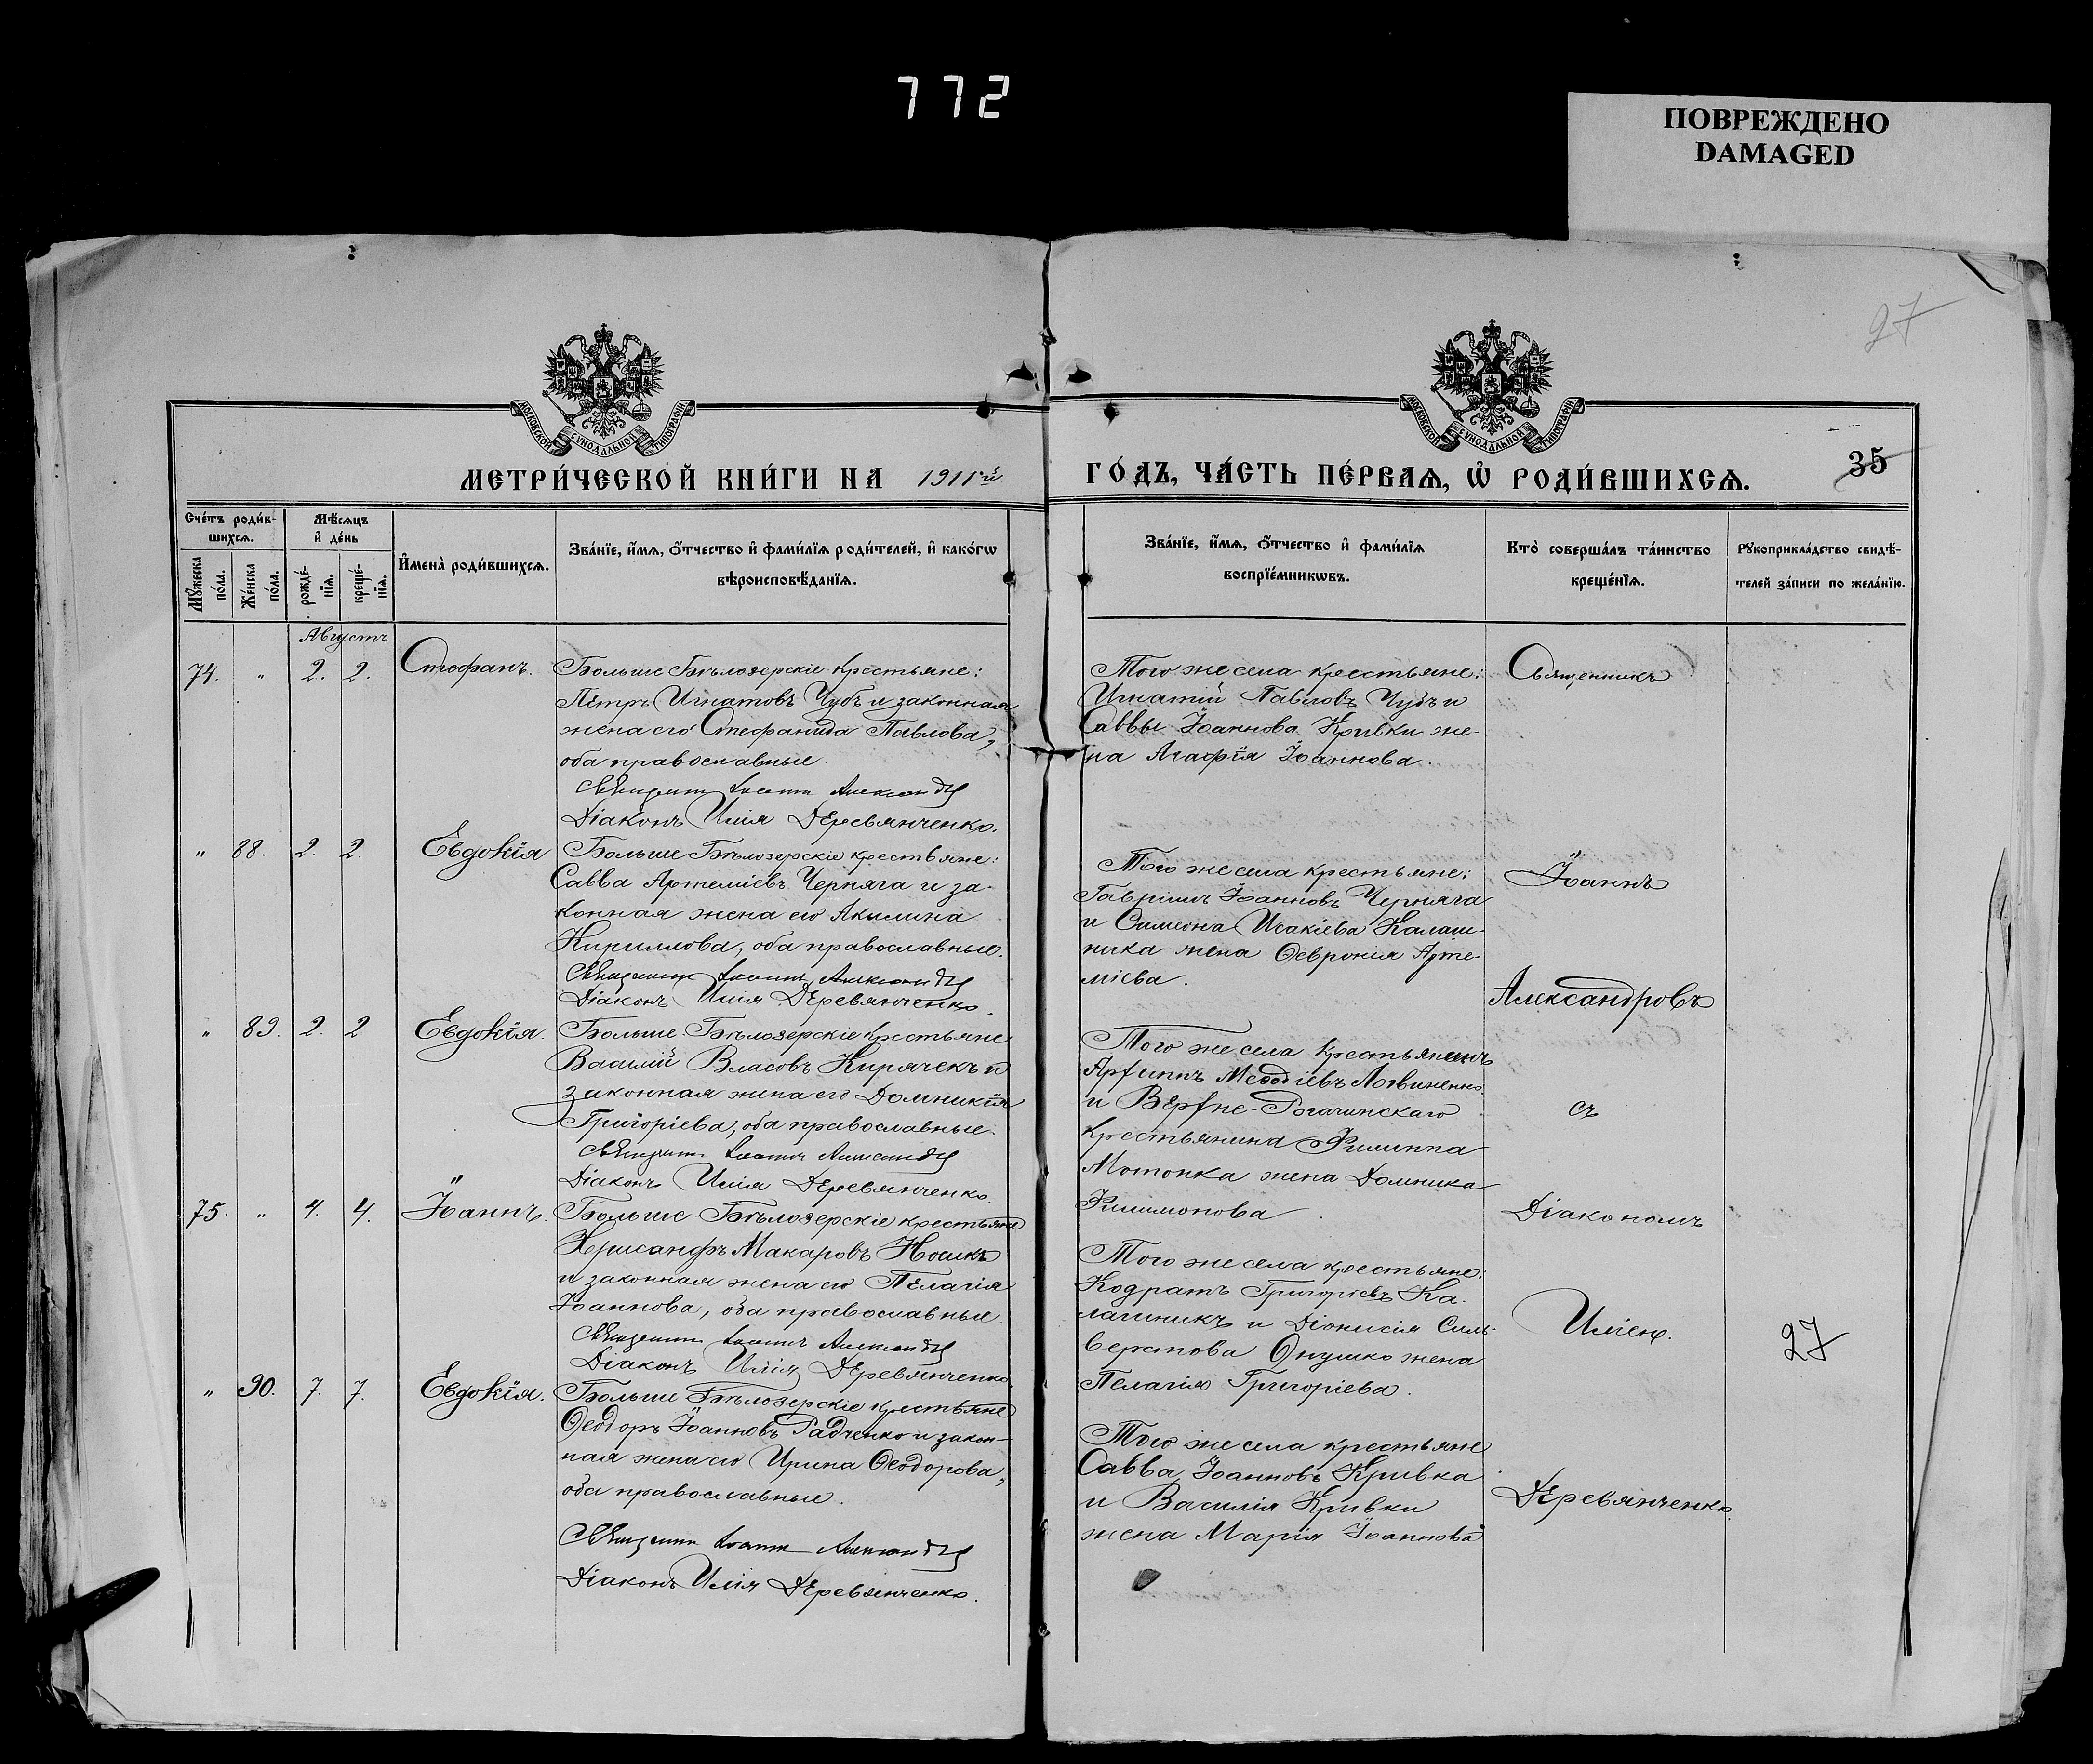 772
ПОВРЕЖДЕНО
DAMAGED
27
МОСКОВСКОЙ СѴНОДАЛЬНОЙ ТИПОГРАФІИ
МОСКОВСКОЙ СѴНОДАЛЬНОЙ ТИПОГРАФІИ
МЕТРИ́ЧЕСКОЙ КНИ́ГИ НА 1911й
ГО́ДЪ, ЧА́СТЬ ПЕ́РВАѦ, Ѽ РОДИ́ВШИХСѦ.
35
Сче́тъ роди́в-
шихсѧ.
Мѣ́сѧцъ
и҆ де́нь
Мꙋ́жеска по́ла.
Же́нска по́ла.
рожде́-нїѧ.
креще́-нїѧ.
И҆мена̀ роди́вшихсѧ.
Зва́нїе, и҆́мѧ, ѻ҆́тчество и҆ фами́лїѧ роди́телей, и҆ како́гѡ
вѣроисповѣ́данїѧ.
Зва́нїе, и҆́мѧ, ѻ҆́тчество и҆ фами́лїѧ
воспрїе́мникѡвъ.
Кто̀ соверша́лъ та́инство
креще́нїѧ.
Рꙋкоприкла́дство свидѣ́-
телей за́писи по жела́нїю.
Августъ
74. " 2. 2. Стефанъ.
Больше Бѣлозерскіе крестьяне:
Петръ Игнатовъ Чубъ и законная
жена его Стефанида Павлова,
оба православные.
Священникъ Іоаннъ Александровъ
Діаконъ Илія Деревянченко.
Того же села крестьяне:
Игнатій Павловъ Чубъ и
Саввы Іоаннова Кривки же-
на Агафія Іоаннова.
Священникъ
" 88. 2. 2. Евдокія
Больше Бѣлозерскіе крестьяне:
Савва Артеміевъ Черняга и за-
конная жена его Акилина
Кириллова, оба православные.
Священникъ Іоаннъ Александровъ
Діаконъ Илія Деревянченко.
Того же села крестьяне:
Гавріилъ Іоанновъ Черняга
и Симеона Исакіева Калаш-
ника жена Ѳевронія Арте-
міева.
Іоаннъ
Александровъ
" 89. 2. 2 Евдокія.
Больше-Бѣлозерскіе крестьяне
Василій Власовъ Кирячекъ и
законная жена его Домникія
Григоріева, оба православные.
Священникъ Іоаннъ Александровъ
Діаконъ Илія Деревянченко.
Того же села крестьянинъ
Архипъ Меѳодіевъ Логвиненко
и Верхне-Рогачинскаго
крестьянина Филиппа
Мотонка жена Домника
Филимонова.
съ
Діакономъ
75. " 4. 4. Іоаннъ.
Больше-Бѣлозерскіе крестьяне
Хрисанфъ Макаровъ Носикъ
и законная жена его Пелагія
Іоаннова, оба православные.
Священникъ Іоаннъ Александровъ
Діаконъ Илія Деревянченко.
Того же села крестьяне:
Кодратъ Григоріевъ Ка-
лашникъ и Діонисія Силь-
верстова Онушко жена
Пелагія Григоріева.
Иліею.
27
" 90. 7. 7. Евдокія.
Больше Бѣлозерскіе крестьяне
Ѳеодоръ Іоанновъ Радченко и закон-
ная жена его Ирина Ѳеодорова,
оба православные.
Священникъ Іоаннъ Александровъ
Діаконъ Илія Деревянченко.
Того же села крестьяне
Савва Іоанновъ Кривка
и Василія Кривки
жена Марія Іоаннова
Деревянченко.